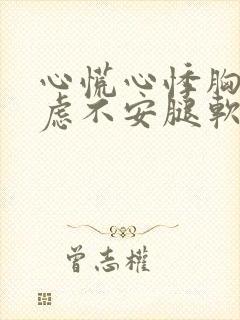 心慌心悸胸
虑不安腿軟
曾志權